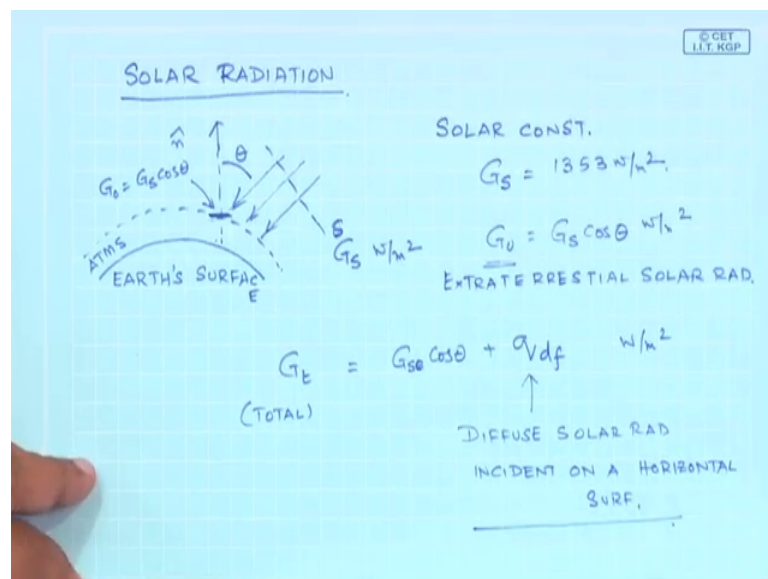 © CET
I.I.T. KGP
SOLAR RADIATION
n̂
θ
G₀ = Gs cosθ
ATMS
EARTH'S SURFAC
E
S
Gs W/m²
SOLAR CONST.
Gs = 1353 W/m².
G₀ = Gs cosθ W/m²
EXTRATERRESTIAL SOLAR RAD.
Gt = Gsθ cosθ + qdf W/m²
(TOTAL)
DIFFUSE SOLAR RAD
INCIDENT ON A HORIZONTAL
SURF.